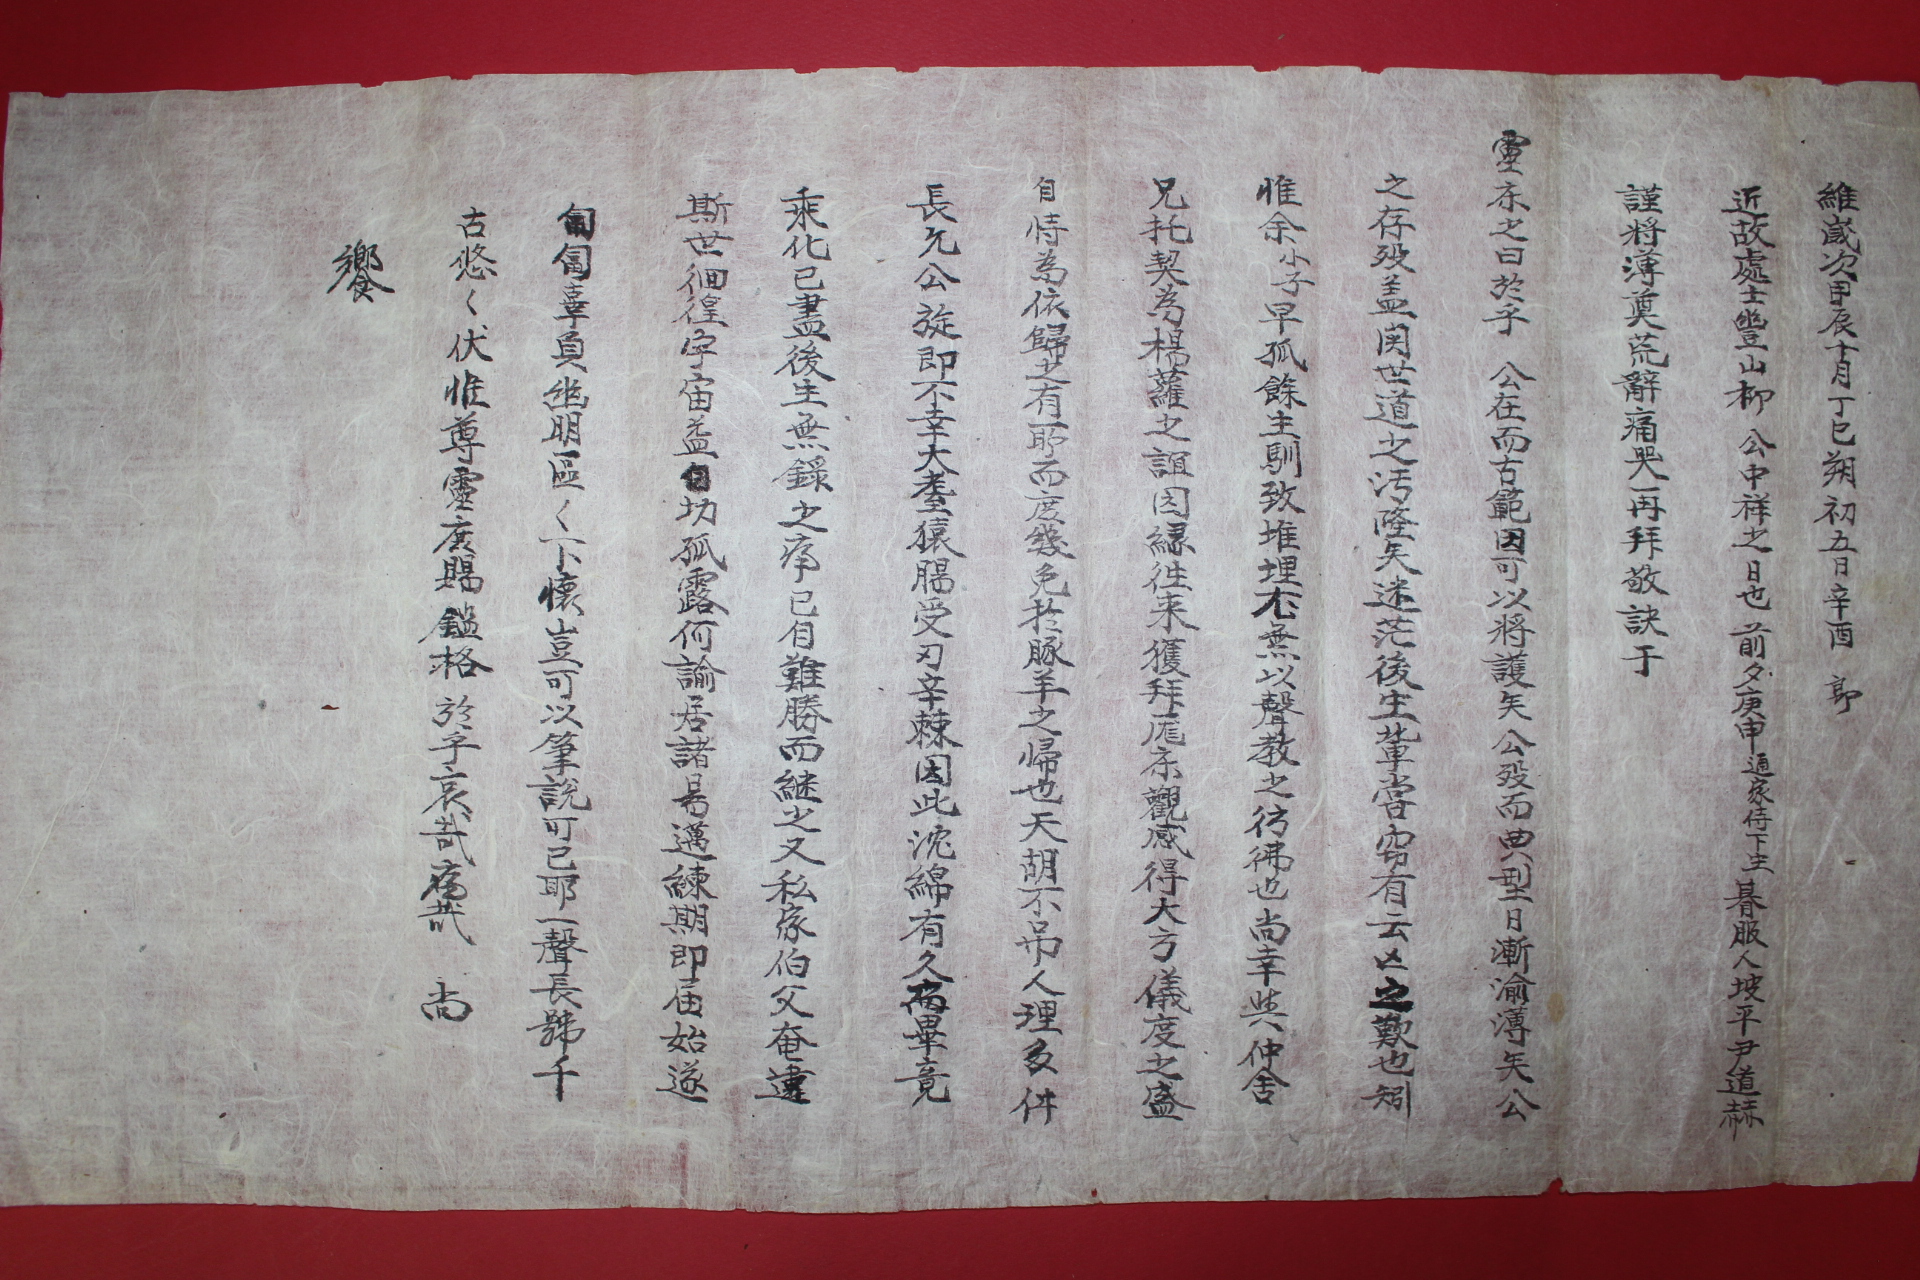 維歲次甲辰十月丁巳朔初五日辛酉 即
近故處士豊山柳 公中祥之日也 前夕庚申通家侍下生朞服人坡平尹道赫
謹將薄奠荒辭痛哭再拜敬訣于
靈床之曰於乎 公在而古範因可以將護矣公歿而典型日漸渝薄矣公
之存歿盖関世道之汚隆矣迷茫後生輩嘗窃有云亡之歎也矧
惟余小子早孤餘生馴致堆埋不無以聲教之彷彿也尚幸與仲舍
兄托契為楊蘿之誼因緣徃来獲拜床觀感得大方儀度之盛
自恃為依歸之有耶而庶幾免於豚羊之帰也天胡不吊人理多舛
長允公旋即不幸大耋猿腸受刃辛棘因此沈綿有久病畢竟
乘化已盡後生無錄之痛已自難勝而継之又私家伯父奄違
斯世徊徨宇宙益自切孤露何諭居諸易邁練期即届始遂
匍匐辜負幽明區〻下懷豈可以筆說可已耶一聲長號千
古悠〻伏惟尊靈庶賜鑑格於乎哀哉痛哉 尚
饗